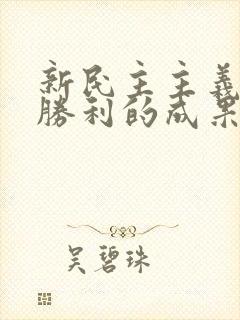 新民主主義
勝利的成果
吳碧珠